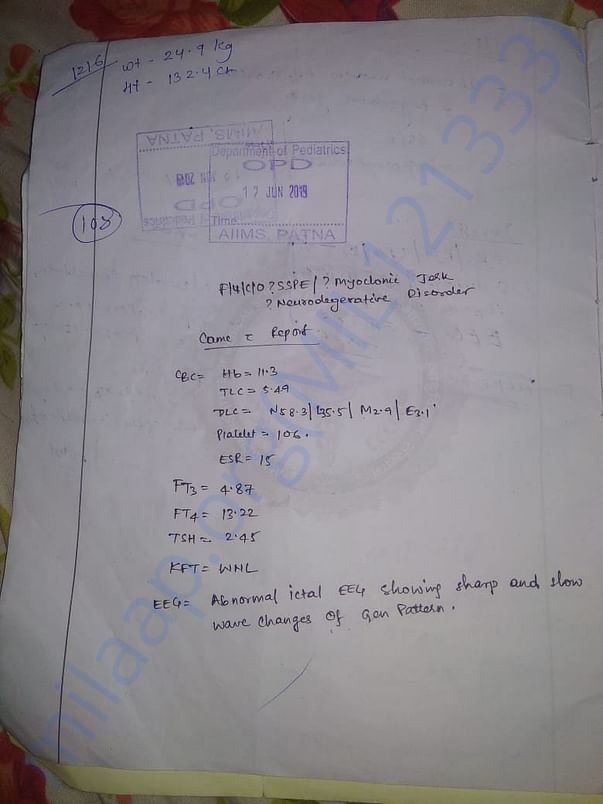 1216
wt - 24.9 kg
Ht - 132.4 cm
AIIMS, PATNA
Department of Pediatrics
OPD
17 JUN 2019
Time
AIIMS, PATNA
108
F/U/C/O ?SSPE/ ? Myoclonic Jerk
? Neurodegerative Disorder
Came c̄ Report
CBC = Hb = 11.3
TLC = 5.49
DLC = N58.3/L35.5/ M2.9/ E3.1
Platelet = 106.
ESR = 15
FT3 = 4.87
FT4 = 13.22
TSH = 2.45
KFT = WNL
EEG = Abnormal ictal EEG showing sharp and slow
wave changes of Gen Pattern.